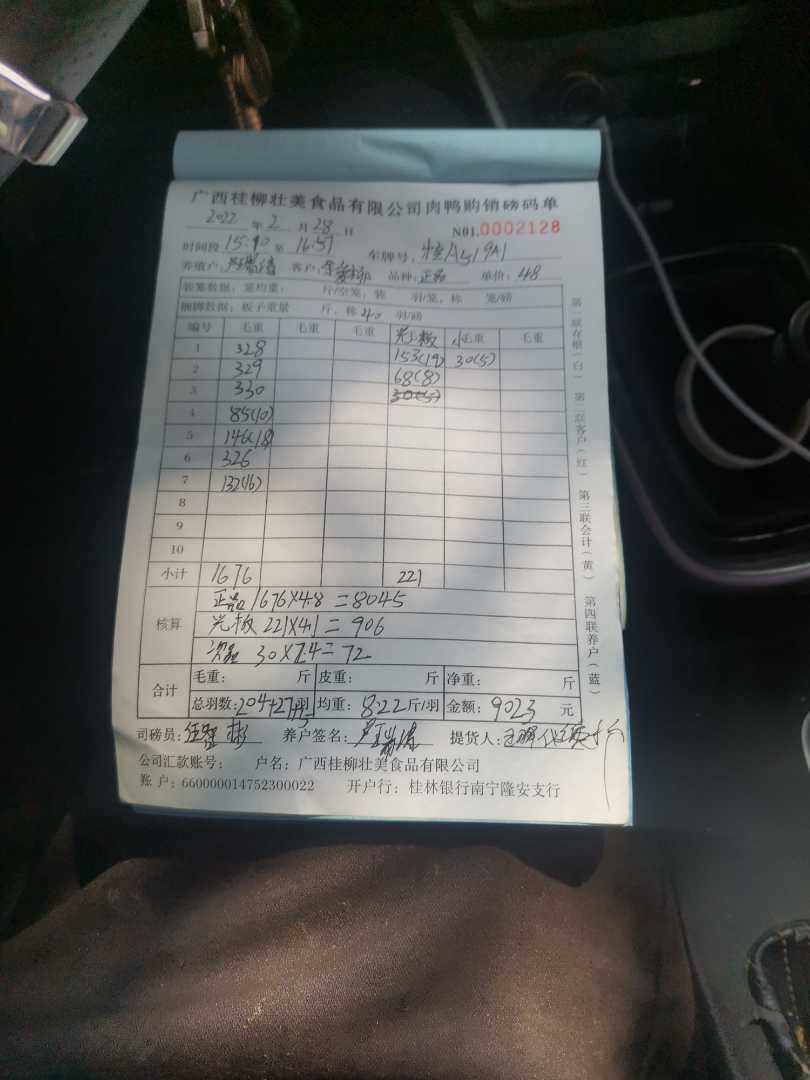 广西桂柳壮美食品有限公司肉鸭购销磅码单
2022年2月28日 N01.0002128
时间段15:10至16:51 车牌号:桂A519A1
养殖户: 客户: 品种:正品 单价:48
装笼数据:笼均重: 斤/空笼,装 羽/笼,称 笼/磅
捆脚数据:板子重量 斤,称40羽/磅
编号 毛重 毛重 毛重 光板 小毛重 毛重
1 328 153(19) 30(5)
2 329 68(8)
3 330 30(5)
4 85(10)
5 146(18)
6 326
7 132(16)
8
9
10
小计 1676 221
核算 正品1676×4.8=8045
光板221×4.1=906
30×2.4=72
合计 毛重: 斤 皮重: 斤 净重: 斤
总羽数:204+27羽+5 均重:8.22斤/羽 金额:9023元
司磅员: 养户签名: 提货人:
公司汇款账号: 户名:广西桂柳壮美食品有限公司
账户:660000014752300022 开户行:桂林银行南宁隆安支行
第一联存根(白) 第二联客户(红) 第三联会计(黄) 第四联养户(蓝)